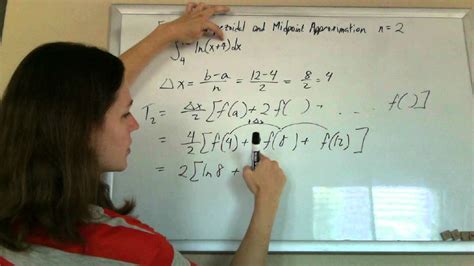 Trapezoidal and Midpoint Approximation n=2
∫₄ ln(x+4)dx
Δx = b-a/n = 12-4/2 = 8/2 = 4
T₂ = Δx/2 [f(a)+2f( ) . . . . f( )]
+Δx
= 4/2 [f(4)+ f(8) + f(12)]
= 2[ln8 +